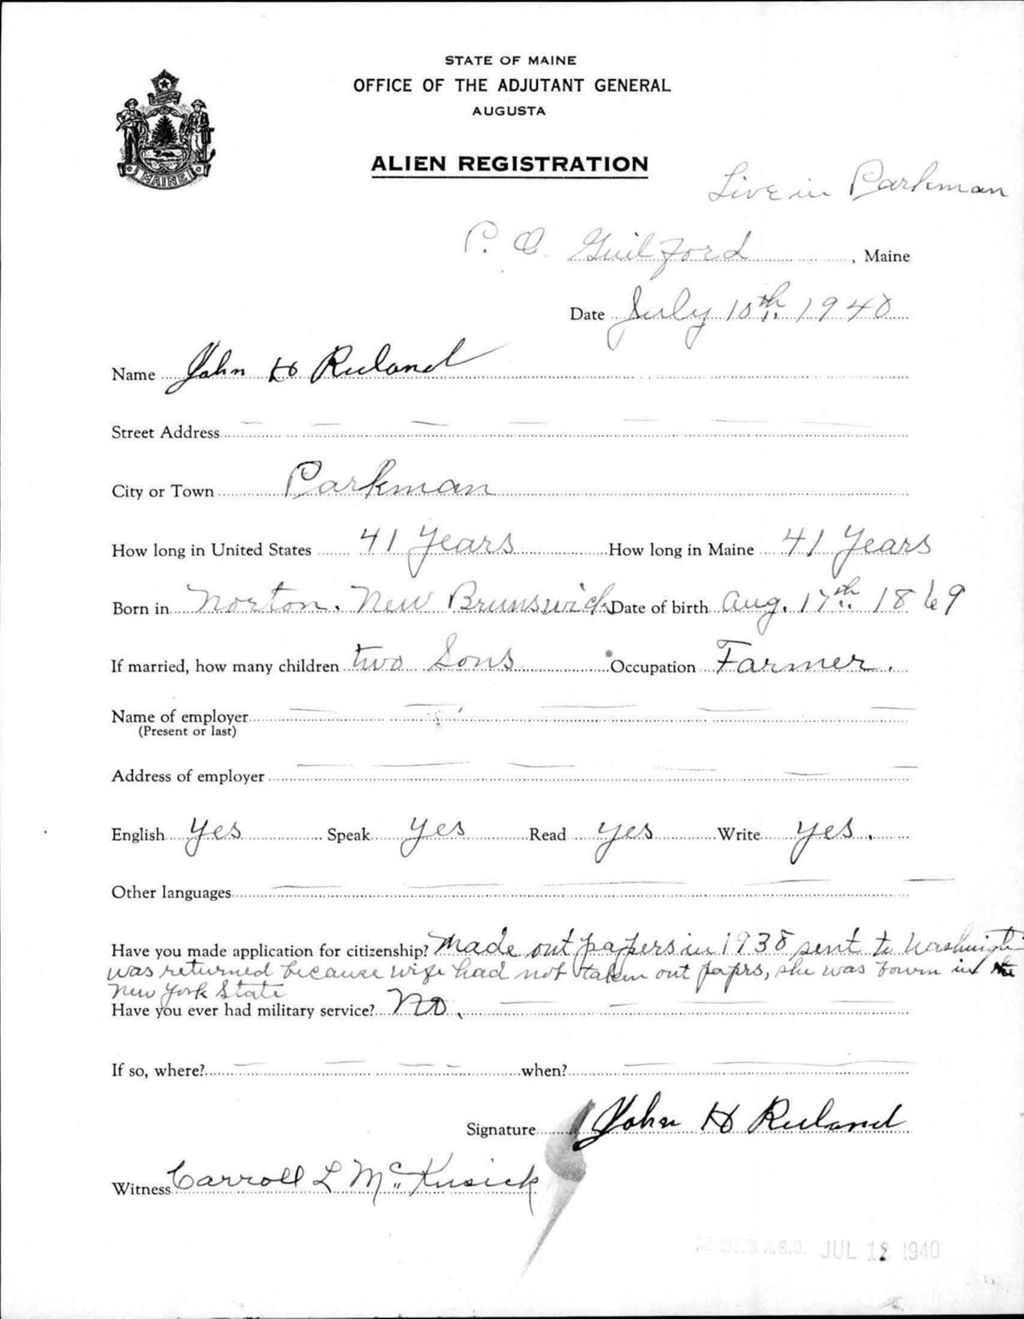 STATE OF MAINE
OFFICE OF THE ADJUTANT GENERAL
AUGUSTA
ALIEN REGISTRATION
MAINE
Live in Parkman
P. O. Guilford, Maine
Date July 10th, 1940
Name John H Ruland
Street Address
City or Town Parkman
How long in United States 41 Years How long in Maine 41 Years
Born in Norton. New Brunswick Date of birth Aug. 17th. 1869
If married, how many children two Sons Occupation Farmer.
Name of employer
(Present or last)
Address of employer
English Yes Speak Yes Read yes Write yes.
Other languages
Have you made application for citizenship? Made out papers in 1938 sent to
was returned because wife had not taken out paprs, she was in the
New York State
Have you ever had military service? No.
If so, where? when?
Signature John H Ruland
Witness Carroll L McKusick
A.G.O. JUL 12 1940